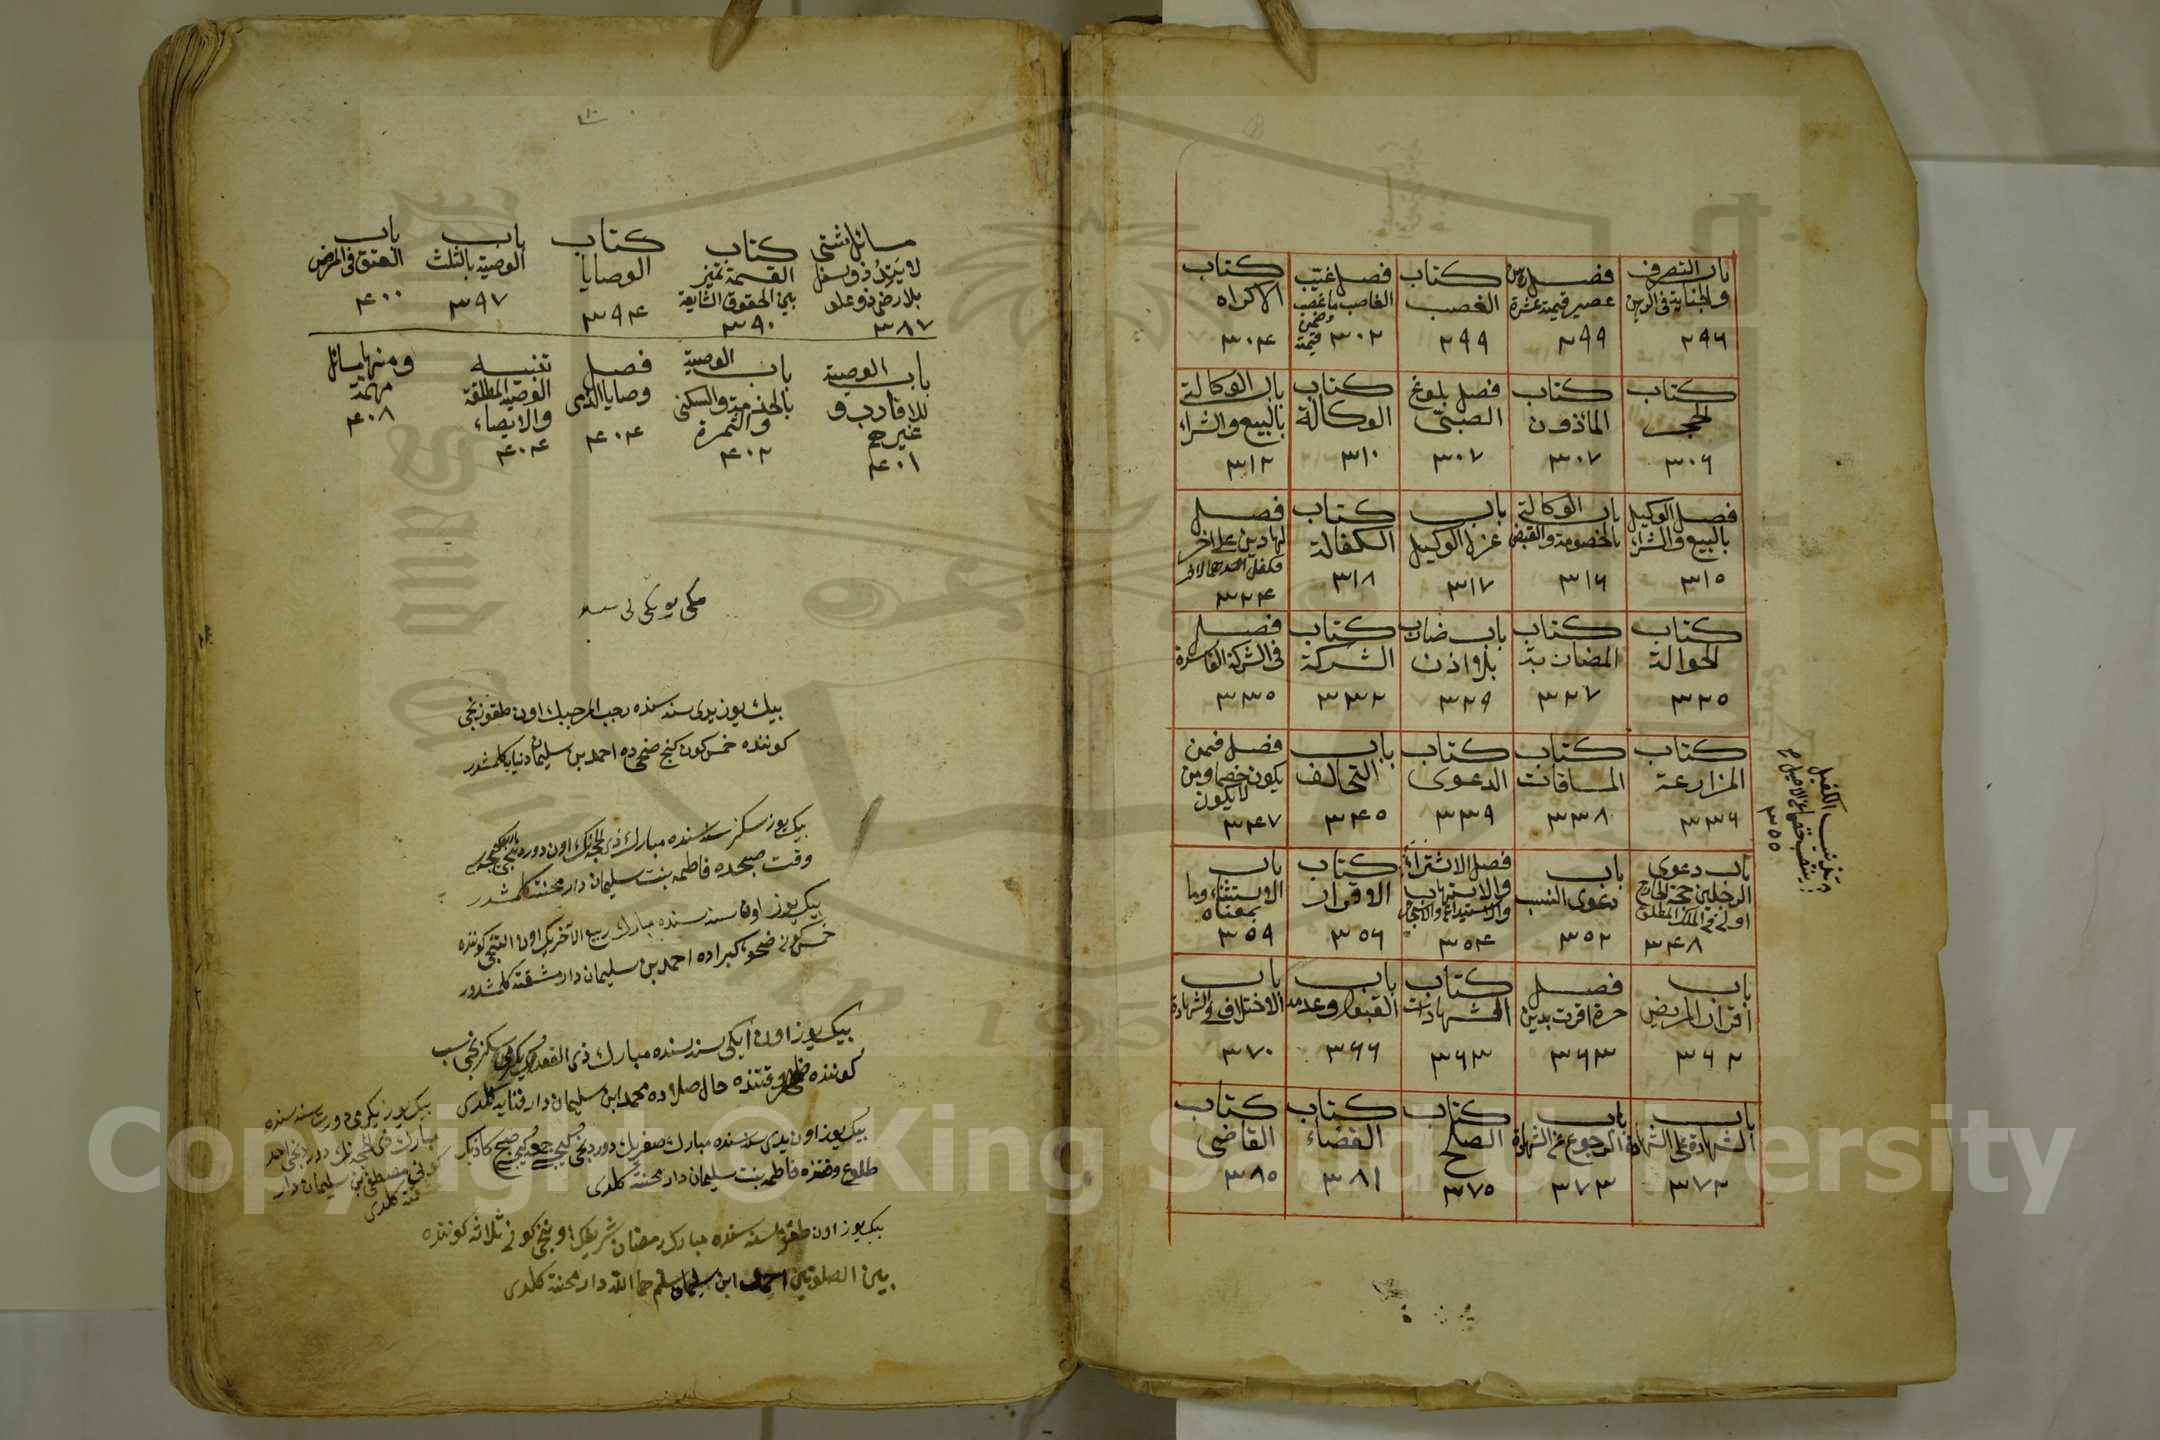 باب التصرف
والجناية في الرهن
٢٩٦
فصل رهن
عصير قيمته عشرة
٢٩٩
كتاب
الغصب
٢٩٩
فصل غيب
الغاصب ما غصب
وضمن
قيمته
٣٠٢
كتاب
الاكراه
٣٠٤
كتاب
الحجر
٣٠٦
كتاب
المأذون
٣٠٧
فصل بلوغ
الصبي
٣٠٧
كتاب
الوكالة
٣١٠
باب الوكالة
بالبيع والشراء
٣١٢
فصل الوكيل
بالبيع والشراء
٣١٥
باب الوكالة
بالخصومة والقبض
٣١٦
باب
عزل الوكيل
٣١٧
كتاب
الكفالة
٣١٨
فصل
لهما دين على آخر
٣٢٤
كتاب
الحوالة
٣٢٥
كتاب
المضاربة
٣٢٧
باب ضارب
بلا اذن
٣٢٩
كتاب
الشركة
٣٣٢
فصل
في الشركة الفاسدة
٣٣٥
كتاب
المزارعة
٣٣٦
كتاب
المساقات
٣٣٨
كتاب
الدعوى
٣٣٩
باب
التحالف
٣٤٥
فصل فيمن
يكون خصما ومن
لا يكون
٣٤٧
باب دعوى
الرجلين حجة الخارج
اولى في الملك المطلق
٣٤٨
باب
دعوى النسب
٣٥٢
فصل الاشتراء
والاستيهاب
٣٥٤
كتاب
الاقرار
٣٥٦
باب
الاستثناء وما
بمعناه
٣٥٩
باب
اقرار المريض
٣٦٢
فصل
حرة اقرت بدين
٣٦٣
كتاب
الشهادات
٣٦٣
باب
القبول وعدمه
٣٦٦
باب
الاختلاف في الشهادة
٣٧٠
باب
الشهادة على الشهادة
٣٧٢
باب
الرجوع عن الشهادة
٣٧٣
كتاب
الصلح
٣٧٥
كتاب
القضاء
٣٨١
كتاب
القاضي
٣٨٥
٣٥٥
مسائل شتى
لا يتد ذو سفل
بلا رضى ذو علو
٣٨٧
كتاب
القسمة تميز
بين الحقوق الشايعة
٣٩٠
كتاب
الوصايا
٣٩٤
باب
الوصية بالثلث
٣٩٧
باب
العتق في المرض
٤٠٠
باب الوصية
للاقارب و
غيرهم
٤٠١
باب الوصية
بالخدمة والسكنى
والثمرة
٤٠٢
فصل
وصايا الذمي
٤٠٤
تنبيه
الوصية المطلقة
والايصاء
٤٠٤
ومنها مسائل
مهمة
٤٠٨
بيك يوز يدى سنه سنده رجب المرجبك اون طقوزنجى
كوننده خمس كون احمد بن سليمان دنيايه كلمشدر
بيك يوز سكز سنه سنده مبارك ذى الحجه نك اون دوردنجى
وقت صبحده فاطمه بنت سليمان دار محنته كلمشدر
بيك يوز اون سنه سنده مبارك ربيع الآخرك اون التنجى كوننده
خمس كونى ضحوه كبراده احمد بن سليمان دار مشقته كلمشدر
بيك يوز اون ايكى سنه سنده مبارك ذى القعده يكرمى سكزنجى سبت
كوننده وقتنده محمد ابن سليمان دار فنايه كلدى
بيك يوز اون يدى سنه سنده مبارك صفرك دوردنجى صبح كاذبك
طلوع وقتنده فاطمه بنت سليمان دار محنته كلدى
بيك يوز يكرمى دورت سنه سنده
مبارك ذى الحجه نك دوردنجى احد
كونى مصطفى بن سليمان دار
كلدى
بيك يوز اون طقوز سنه سنده مبارك رمضان شريفك اونجى كونى ثلاثه كوننده
بين الصلوتين احمد ابن سليمان سلمهما الله دار محنته كلدى
Copyright © King Saud University